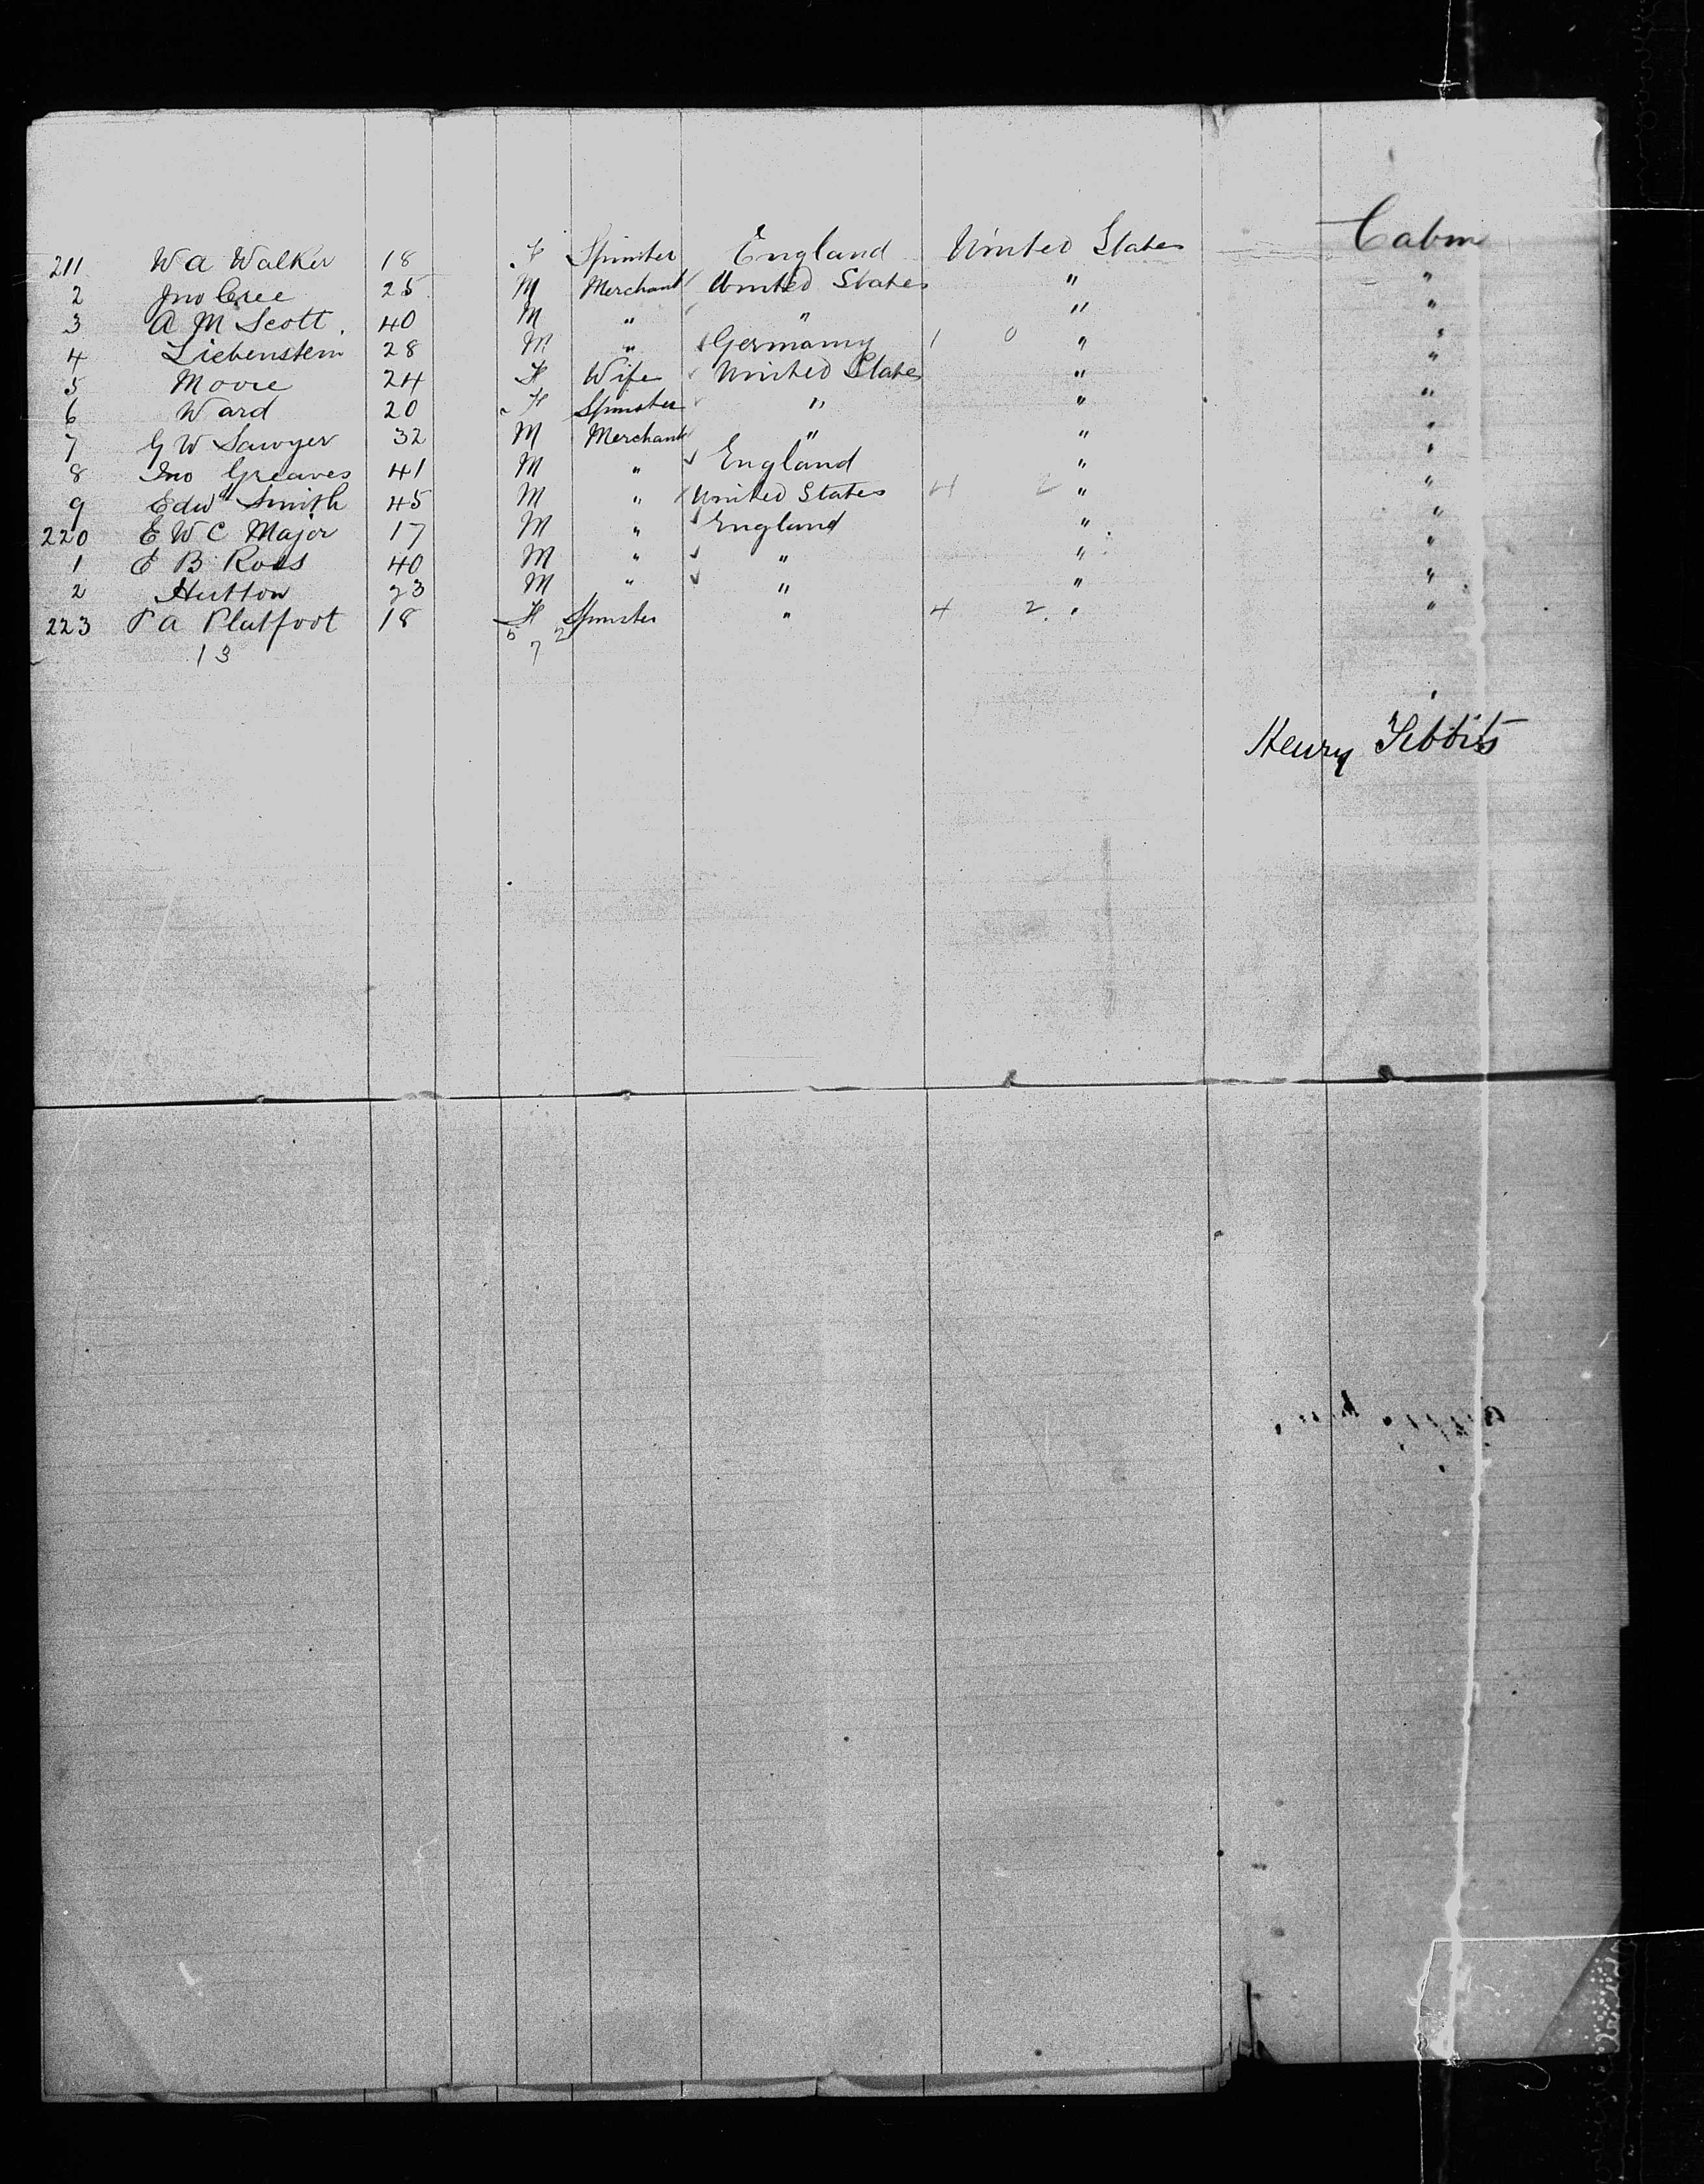 211 W A Walker 18 F Spinster England United States Cabin
2 Jno Cree 25 M Merchant United States " "
3 A M Scott. 40 M " " " "
4 Liebenstein 28 M " Germany 1 0 " "
5 Moore 24 F Wife United States " "
6 Ward 20 F Spinster " " "
7 G W Sawyer 32 M Merchant " " "
8 Jno Greaves 41 M " England " "
9 Edwd Smith 45 M " United States 4 2 " "
220 E W C Major 17 M " England " "
1 E B Ross 40 M " " " "
2 Hutton 23 M " " " "
223 P A Platfoot 18 F Spinster " 4 2 " "
13 5 7 2
Henry Tibbits